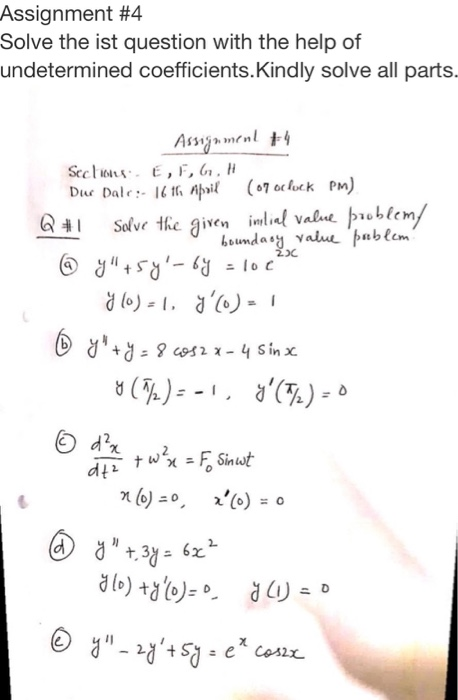 Assignment #4
Solve the ist question with the help of
undetermined coefficients.Kindly solve all parts.
Assignment #4
Sections:- E, F, G, H
Due Date:- 16th April (07 oclock PM)
Q #1 Solve the given initial value problem/
boundary value problem
(a) y'' + 5y' - 6y = 10e^{2x}
y(0) = 1, y'(0) = 1
(b) y'' + y = 8 cos2x - 4 Sinx
y(π/2) = -1, y'(π/2) = 0
(c) d²x/dt² + w²x = F₀ Sinwt
x(0) = 0, x'(0) = 0
(d) y'' + 3y = 6x²
y(0) + y'(0) = 0, y(1) = 0
(e) y'' - 2y' + 5y = e^x cos2x